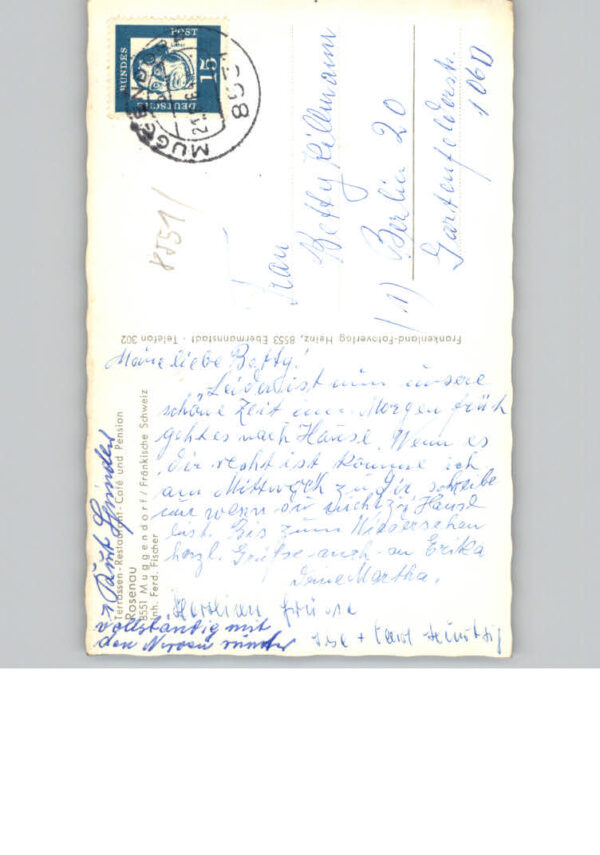 DEUTSCHE
BUNDES
POST
15
MUGGEN
Frau
Betty Hillmann
(1) Berlin 20
Gartenfelderstr.
106D
8551
Frankenland-Fotoverlag Heinz, 8553 Ebermannstadt · Telefon 302
Meine liebe Betty!
Leider ist nun unsere
schöne Zeit um. Morgen früh
geht es nach Hause. Wenn es
dir recht ist komme ich
am Mittwoch zu dir, schreibe
nur wenn du nicht zu Hause
bist. Bis zum Wiedersehen
herzl. Grüße auch an Erika
Deine Martha.
Grüsse
+ Karl
vollständig mit
den Nerven runter
Terrassen-Restaurant-Café und Pension
Rosenau
8551 Muggendorf/Fränkische Schweiz
Inh. Ferd. Fischer